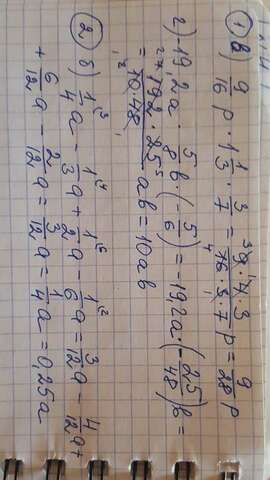 ① в) 9/16 p · 1 1/3 · 3/7 = 9 · 4 · 3 / 16 · 3 · 7 p = 9/28 p
г) -19,2a · 5/8 b · (-5/6) = -19,2a · (-25/48) b =
= 192 · 25 / 10 · 48 ab = 10ab
② б) 1/4 a - 1/3 a + 1/2 a - 1/6 a = 3/12 a - 4/12 a +
+ 6/12 a - 2/12 a = 3/12 a = 1/4 a = 0,25a